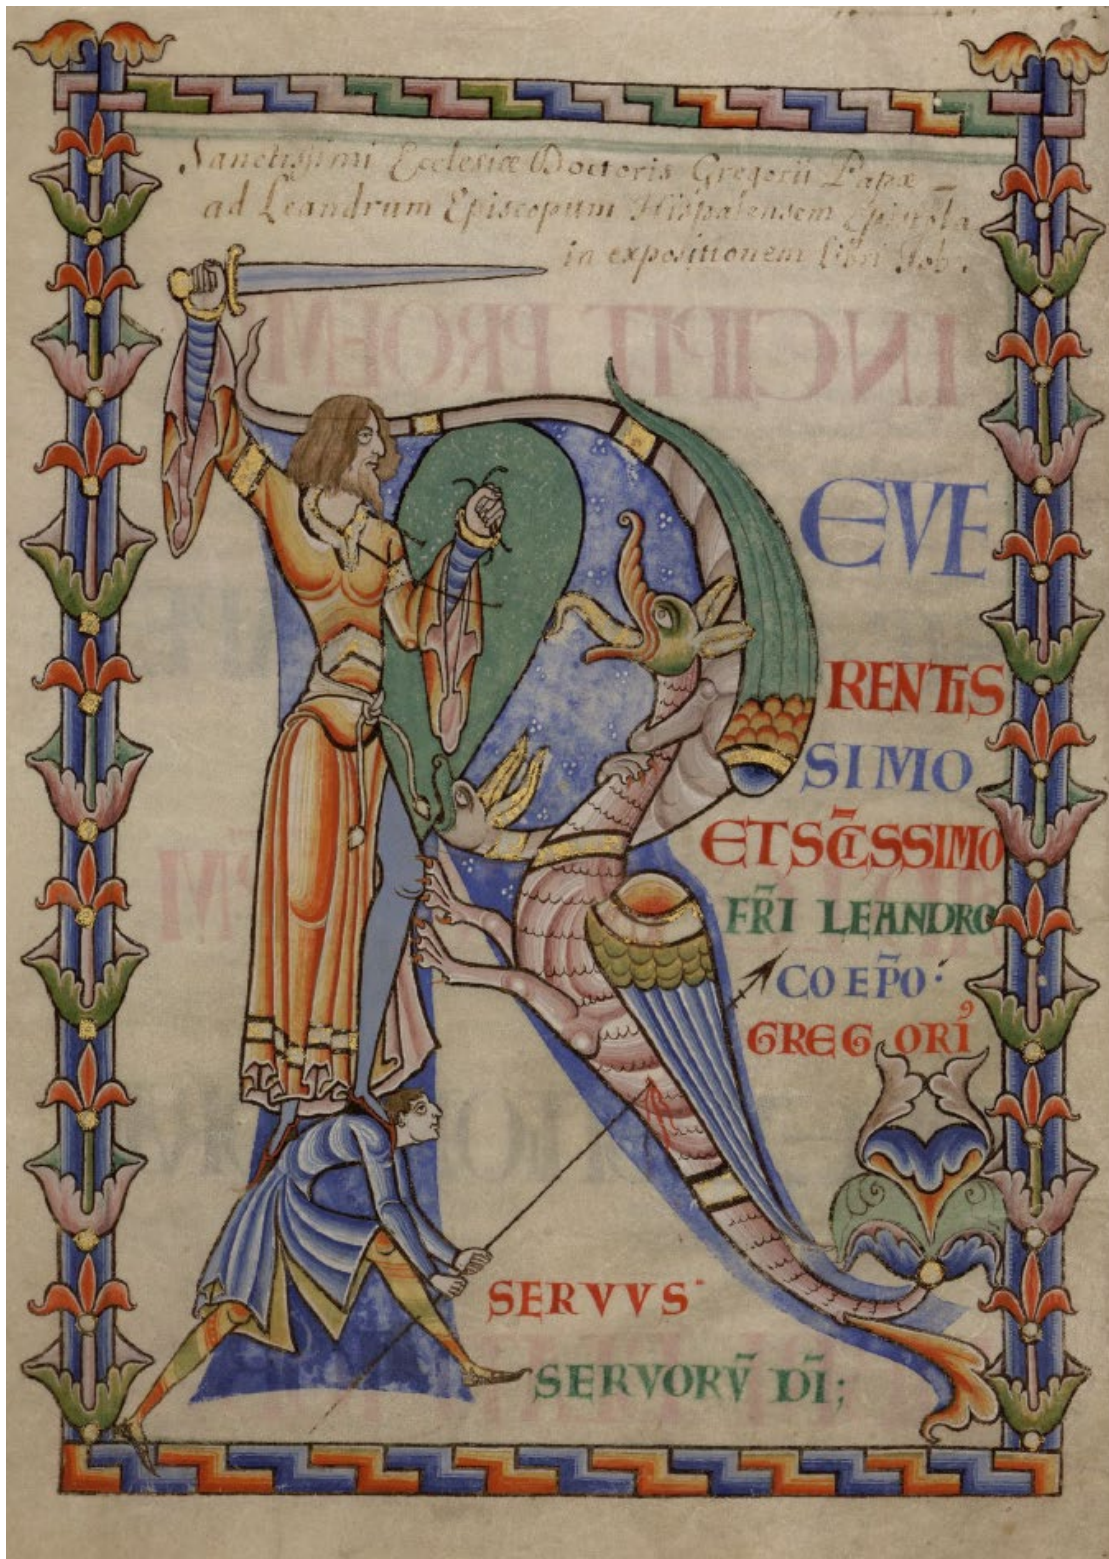 Sanctissimi Ecclesiæ Doctoris Gregorii Papæ
ad Leandrum Episcopum Hispalensem Epistola
in expositionem libri Iob.
R EVE
RENTIS
SIMO
ET SC̄ISSIMO
FR̄I LEANDRO
COEP̄O:
GREGORI᾿
SERVVS
SERVORV̄ DĪ;